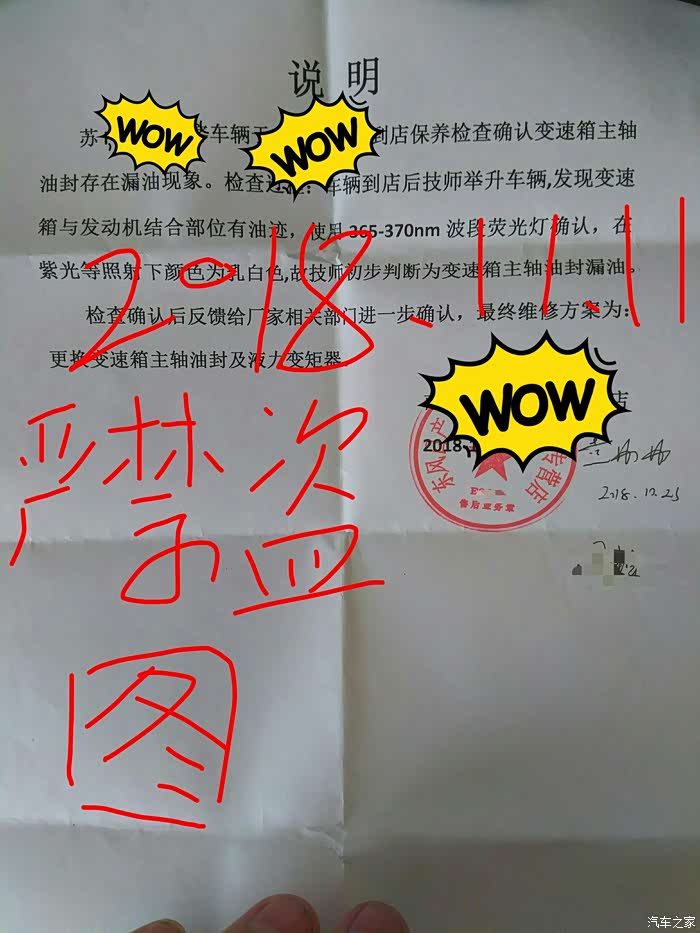 说 明
苏 WOW 车辆 WOW 到店保养检查确认变速箱主轴
油封存在漏油现象。检查过程:车辆到店后技师举升车辆,发现变速
箱与发动机结合部位有油迹,使用 365-370nm 波段荧光灯确认,在
紫光等照射下颜色为乳白色,故技师初步判断为变速箱主轴油封漏油。
检查确认后反馈给厂家相关部门进一步确认,最终维修方案为:
更换变速箱主轴油封及液力变矩器
2018.11.11
WOW
店
2018
东风 产 专营店
售后业务章
2018.10.25
严禁盗
图
汽车之家